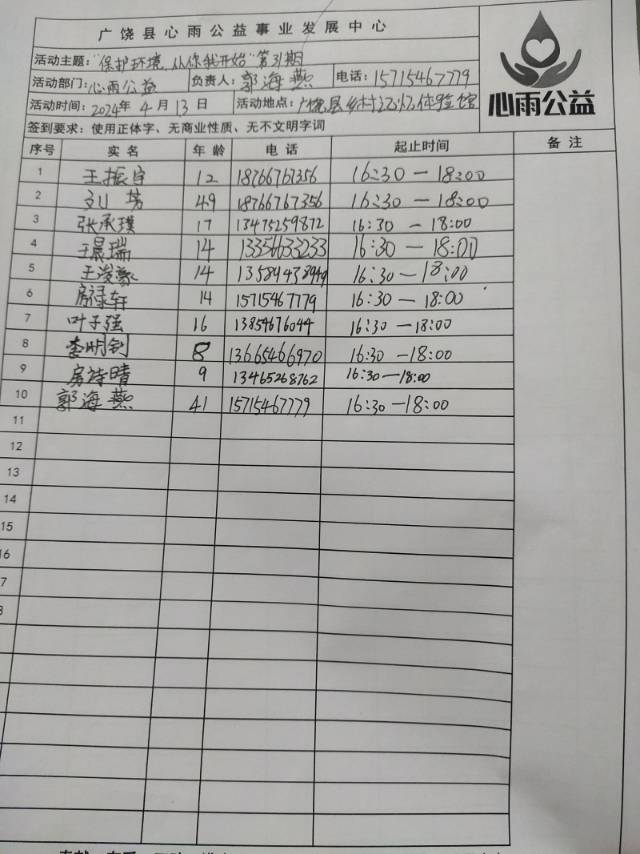 广饶县心雨公益事业发展中心
活动主题:"保护环境,从你我开始"第31期
活动部门:心雨公益 负责人:郭海燕 电话:15715467779
活动时间:2024年4月13日 活动地点:广饶县乡村记忆体验馆
签到要求:使用正体字、无商业性质、无不文明字词
心雨公益
序号 实名 年龄 电话 起止时间 备注
1 王振宇 12 18766767356 16:30-18:00
2 刘芳 49 18766767356 16:30-18:00
3 张承璞 17 13475259872 16:30-18:00
4 王晨瑞 14 13356633233 16:30-18:00
5 王浚豪 14 16:30-18:00
6 房禄轩 14 15715467779 16:30-18:00
7 叶子强 16 13854676044 16:30-18:00
8 李明钊 8 13665466970 16:30-18:00
9 房诗晴 9 13465268762 16:30-18:00
10 郭海燕 41 15715467779 16:30-18:00
11
12
13
14
15
16
7
8